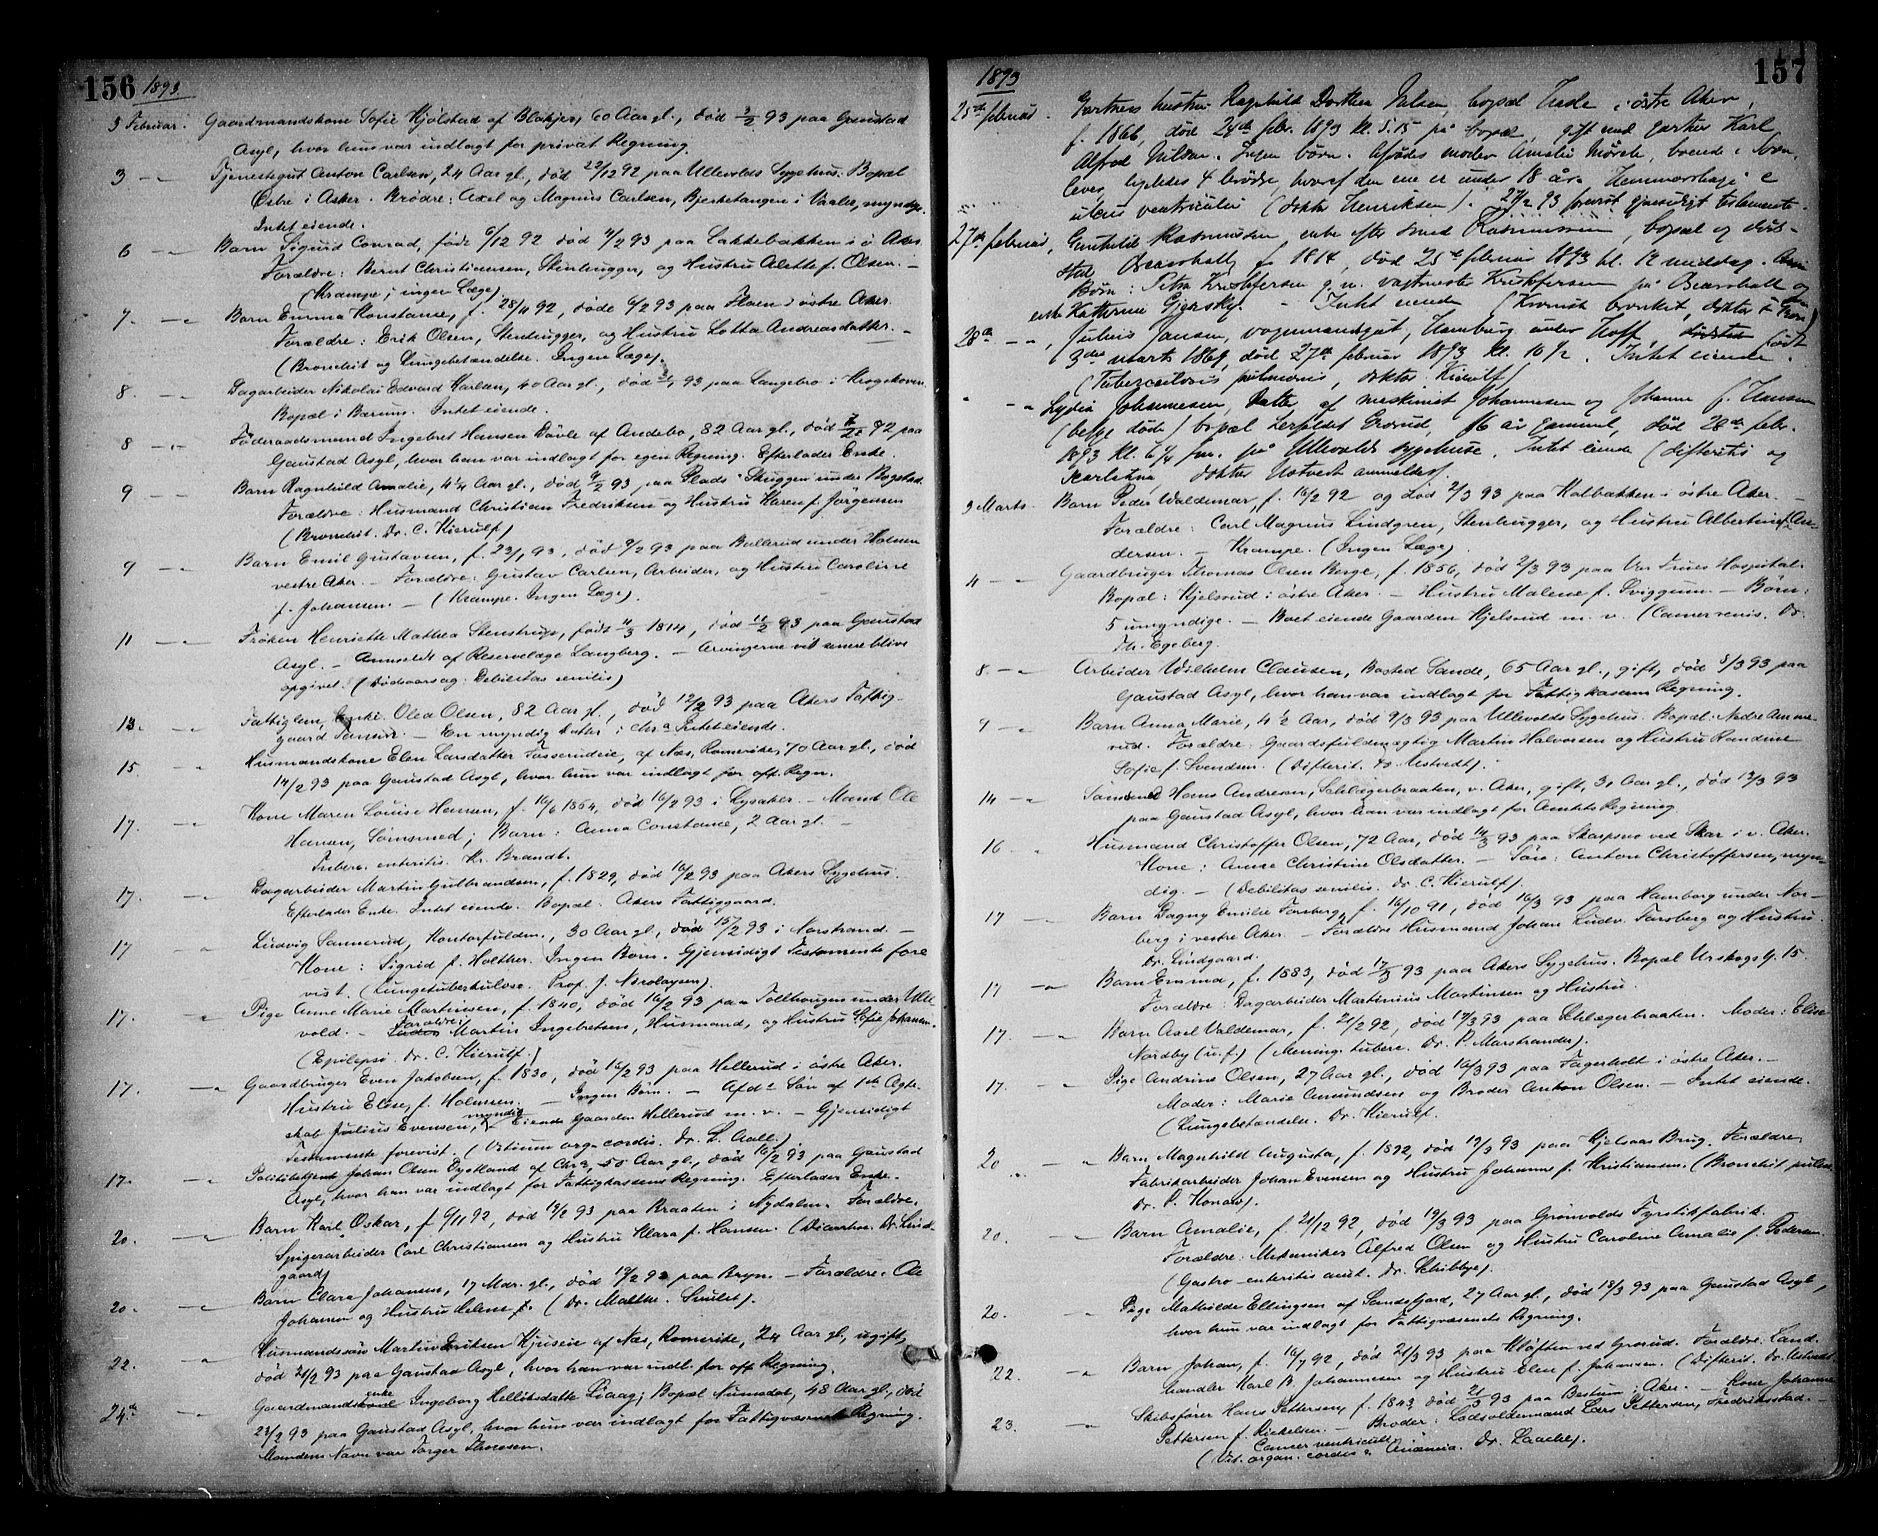 156 1893.
3 Februar. Gaardmandskone Sofie Hjølstad af Blakjer, 60 Aar gl., død 3/2 93 paa Gaustad
Asyl, hvor hun var indlagt for privat Regning.
3 — " Tjenestegut Anton Carlsen, 24 Aar gl., død 29/12 92 paa Ullevolds Sygehus. Bopæl
Østre i Asker. Brødre: Axel og Magnus Carlsen, Bjerketangen i Vaaler, myndige.
Intet eiende.
6 — " Barn Sigurd Conrad, født 6/12 92 død 4/2 93 paa Lakkebakken i ø. Aker.
Forældre: Bernt Christiansen, Stenhugger, og Hustru Alette f. Olsen. —
(Krampe; ingen Læge)
7. — " Barn Emma Konstanse, f. 28/11 92, døde 6/2 93 paa Floen i østre Aker.
Forældre: Erik Olsen, Stenhugger, og Hustru Lotta Andreasdatter. —
(Bronchit og Lungebetændelse. Ingen Læge).
8. — " Dagarbeider Nikolai Edvard Karlsen, 40 Aar gl., død 93 paa Langebro i Krogskoven.
Bopæl i Bærum. Intet eiende.
8 — " Føderaadsmand Ingebret Hansen Døvle af Andebo, 82 Aar gl., død 92 paa
Gaustad Asyl, hvor han var indlagt for egen Regning. Efterlader Enke.
9 — " Barn Ragnhild Amalie, 4 1/4 Aar gl., død 6/2 93 paa Plads Skuggen under Bogstad.
Forældre: Husmand Christian Fredriksen og Hustru Karen f. Jørgensen
(Bronchit. Dr. C. Kierulf)
9 — " Barn Emil Gustavsen, f. 23/1 93, død 9/2 93 paa Bullerud under Holmen
vestre Aker. — Forældre: Gustav Carlsen, Arbeider, og Hustru Caroline
f. Johansen. — (Krampe. Ingen Læge).
11 — " Frøken Henriette Mathea Stenstrup, født 11/3 1814, død 11/2 93 paa Gaustad
Asyl. — Anmeldt af Reservelæge Langberg. — Arvingerne vil senere blive
opgivet. (Dødsaarsag: Debilitas senilis)
13. — " Fattiglem, Enke Olea Olsen, 82 Aar gl., død 12/2 93 paa Akers Fattig-
gaard Tonsen. — En myndig Datter i Chra Intet eiende.
15. — " Husmandskone Elen Larsdatter Fosserudeie, af Næs, Romerike, 70 Aar gl., død
14/2 93 paa Gaustad Asyl, hvor hun var indlagt for off. Regn.
17. — " Kone Maren Louise Hansen, f. 16/6 1864, død 16/2 93 i Lysaker. — Mand: Ole
Hansen, Sømsmed; Barn: Anna Constanse, 2 Aar gl. —
Tuberc. enteritis. Kr. Brandt.
17. — " Dagarbeider Martin Gulbrandsen, f. 1829, død 16/2 93 paa Akers Sygehus.
Efterlader Enke. Intet eiende. Bopæl: Akers Fattiggaard.
17 — " Ludvig Sannerud, Kontorfuldm., 30 Aar gl., død 15/2 93 i Norstrand. —
Kone: Sigrid f. Holther. Ingen Børn. Gjensidigt Testamente fore
vist. (Lungetuberkulose. Prof. J. Nicolaysen).
17. — " Pige Anne Marie Martinsen, f. 1840, død 16/2 93 paa Tollhougen under Ulle
vold. — Forældre: Martin Ingebretsen, Husmand, og Hustru Sofie Johansen.
(Epilepsi. Dr. C. Kierulf.)
17. — " Gaardbruger Even Jakobsen, f. 1830, død 16/2 93 paa Hellerud i østre Aker.
Hustru Elise, f. Holmsen. — Ingen Børn. — Afdes Søn af 1ste Ægte-
skab Julius Evensen, myndig. Eiende Gaarden Hellerud m. v. — Gjensidigt
Testamente forevist. (Vitium org. cordis. Dr. L. Aall.)
17. — " Politibetjent Johan Olsen Dystland af Chra, 50 Aar gl., død 16/2 93 paa Gaustad
Asyl, hvor han var indlagt for Fattigkassens Regning. Efterlader Enke.
20. — " Barn Karl Oskar, f. 9/11 92, død 19/2 93 paa Braaten i Nydalen. Forældre,
Spigerarbeider Carl Christiansen og Hustru Klara f. Hansen. (Diarrhoe. Dr. Lind-
gaard)
20. — " Barn Clara Johansen, 17 Mdr. gl., død 19/2 93 paa Bryn. — Forældre: Ole
Johansen og Hustru Helene f. (Dr. Malthe. Smidt).
22. " Husmandssøn Martin Eriksen Hjuseie af Næs, Romerike, 24 Aar gl., ugift,
død 21/2 93 paa Gaustad Asyl, hvor han var indl. for off. Regning.
24de — " Gaardmandsenke Ingeborg Hellitsdatter Liaag; Bopæl Numedal, 48 Aar gl., død
23/2 93 paa Gaustad Asyl, hvor hun var indlagt for Fattigvæsnets Regning.
Mandens Navn var Torger Thoresen.
1893 157
25de februar. Gartners hustru Ragnhild Dorthea Nilsen, bopæl Hasle i østre Aker,
f. 1866, død 24de febr. 1893 kl. 5.15 på bopæl, gift med gartner Karl
Alfred Nilsen. Ingen børn. Afdødes moder Amalie Mørch, boende i
lever, ligeledes 4 brødre, hvoraf den ene er under 18 år. Hemmorrhagi e
ulcus ventriculi (doktor Henriksen). 27/2 93 forevist gjensidigt testamente.
27de februar, Gunhild Rasmussen enke efter smed Rasmussen, bopæl og døds-
sted Bearshall, f. 1814, død 25de februar 1893 kl. 12 middag.
Børn: Petra Kristoffersen g. m. Kristoffersen på Bearshall og
enke Katherine Gjersøe. — Intet eiende (Kronisk bronkit, doktor
28de — ", Julius Jansen, vognmandsgut, Hamburg under Hoff, født
3die marts 1869, død 27de februar 1893 kl. 10 1/2. Intet eiende.
(Tuberculosis pulmonis, doktor Kierulf)
" — " Lydia Johannesen, Datter af maskinist Johannesen og Johanne f. Hansen
(begge døde) bopæl Lerfeldet Grorud, 16 år gammel, død 28de febr.
1893 kl. 6 1/4 fm. på Ullevolds sygehuse. Intet eiende (difteritis og
scarlatina, doktor Ustvedt anmelder)
3 Marts. Barn Peder Valdemar, f. 16/2 92 og død 2/3 93 paa Kalbakken i østre Aker. —
Forældre: Carl Magnus Lindgren, Stenhugger, og Hustru Albertine f. An-
dersen. — Krampe. (Ingen Læge).
4 — " Gaardbruger Thomas Olsen Berge, f. 1856, død 2/3 93 paa Vor Frues Hospital.
Bopæl: Hjelsrud i østre Aker. — Hustru Malene f. Sviggum. — Børn:
5 umyndige. — Boet eiende Gaarden Hjelsrud m. v. (Cancer renis. Dr.
Th. Egeberg.
8. — " Arbeider Wilhelm Clausen, Bosted Sande, 65 Aar gl., gift, død 8/3 93 paa
Gaustad Asyl, hvor han var indlagt for Fattigkassens Regning.
9 — " Barn Anna Marie, 4 1/2 Aar, død 9/3 93 paa Ullevolds Sygehus. Bopæl: Nedre Amme-
rud. Forældre: Gaardsfuldmægtig Martin Halvorsen og Hustru Randine
Sofie f. Svendsen. (Difterit. Dr. Ustvedt).
14 — " Hans Andresen, Schlægerbraaten, v. Aker, gift, 30 Aar gl., død 13/3 93
paa Gaustad Asyl, hvor han var indlagt for Amtets Regning.
16 — " Husmand Christoffer Olsen, 72 Aar, død 14/3 93 paa Skarpsno ved Skar i v. Aker.
Kone: Anne Christine Olsdatter. — Søn: Anton Christoffersen, myn-
dig. — (Debilitas senilis. Dr. C. Kierulf).
17 — " Barn Dagny Emilie Forsberg, f. 16/10 91, død 16/3 93 paa Hamborg under Nor-
berg i vestre Aker. — Forældre Husmand Johan Ludv. Forsberg og Hustru.
Dr. Lindgaard.
17 — " Barn Emma, f. 1883, død 17/3 93 paa Akers Sygehus. Bopæl Urskogsg. 15.
Forældre: Dagarbeider Martinius Martinsen og Hustru.
17. — " Barn Axel Valdemar, f. 21/2 92, død 17/3 93 paa Schlægerbraaten. Moder: Elise
Nordby (u. f.) (Mening. tuberc. Dr. P. Marstrander).
17. — " Pige Andrine Olsen, 27 Aar gl., død 16/3 93 paa Fagerholt i østre Aker. —
Moder: Marie Amundsen og Broder Anton Olsen. — Intet eiende.
(Lungebetændelse. Dr. Kierulf.
20 — " Barn Magnhild Augusta, f. 1892, død 19/3 93 paa Kjelsaas Brug. Forældre,
Fabrikarbeider Johan Evensen og Hustru Johanne f. Kristiansen. (Bronchit pulm.
Dr. P. Konow).
20. — " Barn Amalie, f. 21/12 92, død 19/3 93 paa Grønvolds Fyrstikfabrik.
Forældre: Mekaniker Alfred Olsen og Hustru Caroline Amalie f. Pedersen.
(Gastro-enteritis acut. Dr. Schibbye).
20. — " Pige Mathilde Ellingsen af Sandefjord, 27 Aar gl., død 18/3 93 paa Gaustad Asyl,
hvor hun var indlagt for Fattigvæsenets Regning.
22. — " Barn Johan, f. 16/7 92, død 21/3 93 paa Kløften ved Grorud. Forældre: Land-
handler Karl B. Johannesen og Hustru Elen f. Johansen. (Difterit. Dr. Ustvedt
23. — " Skibsfører Hans Pettersen, f. 1843, død 21/3 93 paa Bestum i Aker. — Kone Johanne
Pettersen f. Mickelsen. — Broder: Lodsoldermand Lars Pettersen, Fredriksstad. —
Cancer ventriculi
(Vit. organ. cordis & Anæmia. Dr. Laache).